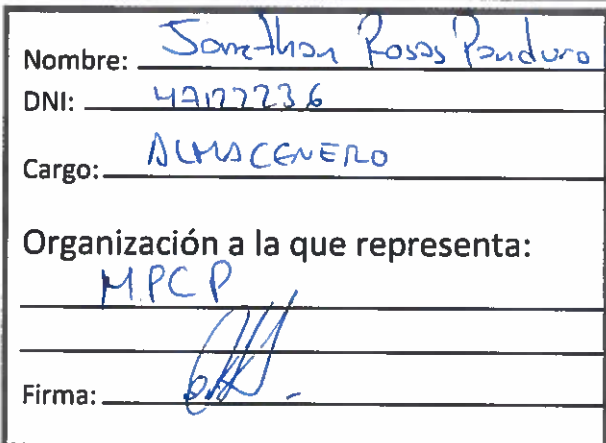 Nombre: Jonathan Rosas Panduro
DNI:
Cargo: ALMACENERO
Organización a la que representa:
MPCP
Firma: